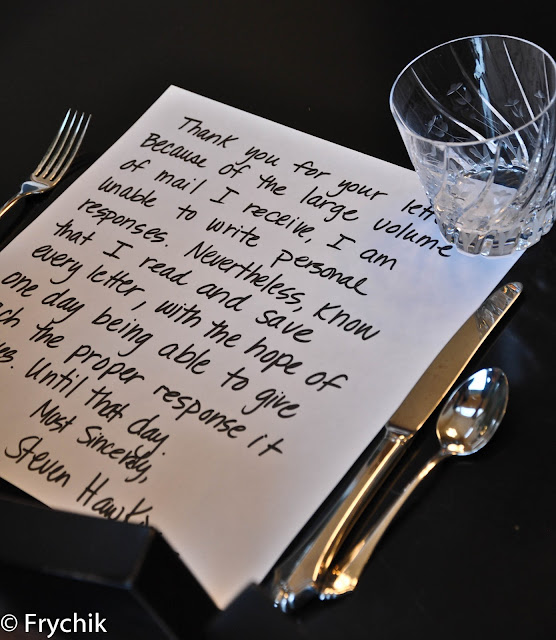 Thank you for your lett
Because of the large volume
of mail I receive, I am
unable to write personal
responses. Nevertheless, know
that I read and save
every letter, with the hope of
one day being able to give
ch the proper response it
es. Until that day.
Most Sincerely,
Steven Hawki
© Frychik